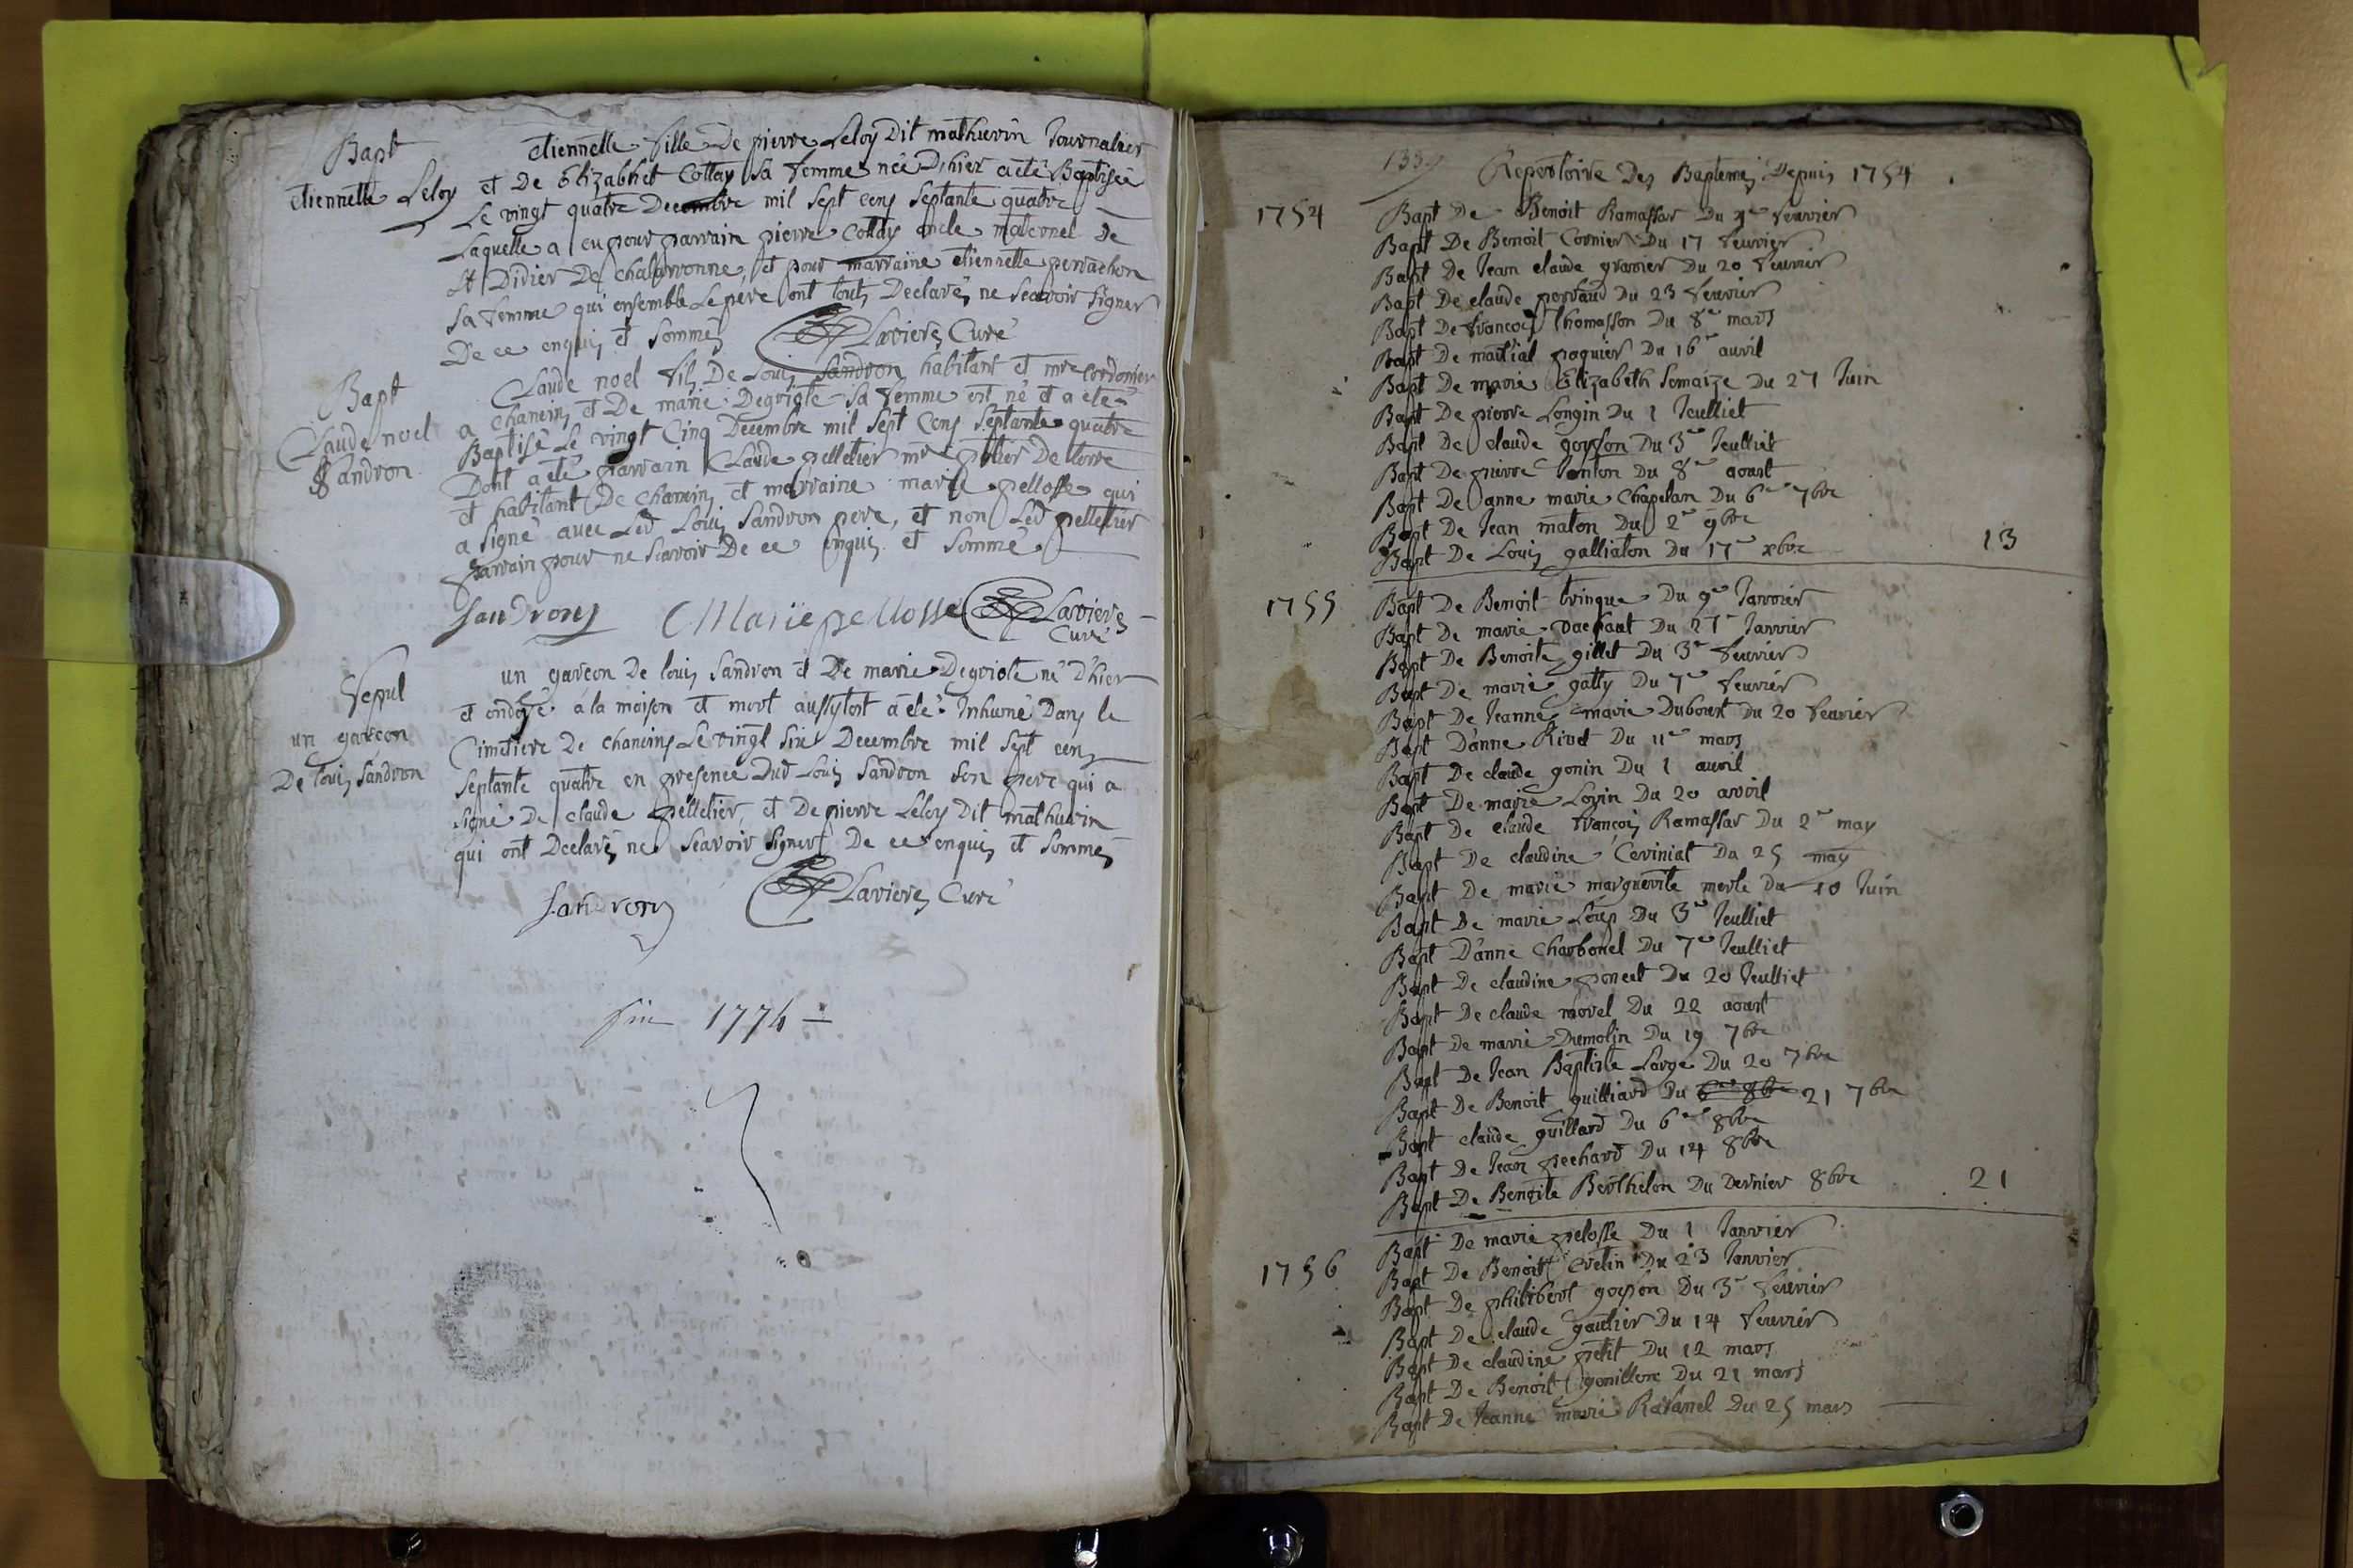 Bapt
Etiennette Leloy
Etiennette fille De pierre Leloy Dit mathuvin Journalier
et De Elizabhet Cottay sa femme née D'hier a eté Baptisée
Le vingt quatre Decembre mil sept cens septante quatre
Laquelle a eu pour parrain pierre Cottay oncle maternel De
St Didier De Chalaronne, et pour marraine etiennette pervachon
sa femme qui ensemble Le pere ont touts Declarés ne scavoir signer
De ce enquis et sommés Lavieres Curé
Bapt
Claude noel
Sandron
Claude noel fils De Louis Sandron habitant et mre cordonier
a chaneins et De marie Degriote sa femme est né et a eté
Baptisé Le vingt Cinq Decembre mil sept Cens septante quatre
Dont a eté parrain Claude pelletier mre potier De terre
et habitant De chaneins et marraine marie pellosse qui
a signé avec Led Louis Sandron pere, et non Led pelletier
parrain pour ne scavoir De ce enquis et sommé
Sandrons Marie pellosse Lavieres
Curé
Sepul
un garcon
De louis Sandron
un garcon De louis Sandron et De marie Degriote né d'hier
et ondoyé a la maison et mort aussytost a eté Inhumé Dans le
Cimetiere De chaneins Le vingt six Decembre mil sept cens
septante quatre en presence Dud Louis Sandron son pere qui a
signé De claude pelletier, et De pierre Leloy Dit mathuvin
qui ont Declarés ne scavoir signer De ce enquis et sommés
Sandrons Lavieres Curé
fin 1774
Repertoire Des Baptemes Depuis 1754
1754
Bapt De Benoit Ramassar Du 9e feuvrier
Bapt De Benoit Cornier Du 17 feuvrier
Bapt De Jean claude gravier Du 20 feuvrier
Bapt De claude perraud Du 23 feuvrier
Bapt De francois Thomasson Du 8e mars
Bapt De martial poquier Du 16e auril
Bapt De marie Elizabeth Semaize Du 27 Juin
Bapt De pierre Longin Du 1 Jeulliet
Bapt De claude goyffon Du 3e Jeulliet
Bapt De pierre Tonton Du 8e aoust
Bapt De anne marie Chapelan Du 6e 7bre
Bapt De Jean maton Du 2e 9bre
Bapt De Louis galliaton Du 17e xbre 13
1755
Bapt De Benoit tvinque Du 9e Janvier
Bapt De marie Du 27e Janvier
Bapt De Benoite gillet Du 3e feuvrier
Bapt De marie gatty Du 7e feuvrier
Bapt De Jeanne marie Dubourt Du 20 feuvrier
Bapt D'anne Rivet Du 11e mars
Bapt De claude gonin Du 1 avril
Bapt De marie Lorin Du 20 avril
Bapt De claude françois Ramassar Du 2e may
Bapt De claudine Ceviniat Du 25 may
Bapt De marie marguerite merle Du 10 Juin
Bapt De marie Loup Du 3e Jeulliet
Bapt D'anne Charbonel Du 7e Jeulliet
Bapt De claudine poncet Du 20 Jeulliet
Bapt De claude movel Du 22 aoust
Bapt De marie Dumolin Du 19 7bre
Bapt De Jean Baptiste Large Du 20 7bre
Bapt De Benoit guilliard Du 6e 8bre 21 7bre
Bapt claude guillard Du 6e 8bre
Bapt De Jean pechard Du 14 8bre
Bapt De Benoite Berthelon Du Dernier 8bre 21
1756
Bapt De marie pelosse Du 1 Janvier
Bapt De Benoit Cretin Du 23 Janvier
Bapt De philibert goyfon Du 3e feuvrier
Bapt De claude gautier Du 14 feuvrier
Bapt De claudine petit Du 12 mars
Bapt De Benoit gonillon Du 21 mars
Bapt De Jeanne marie Ravanel Du 25 mars